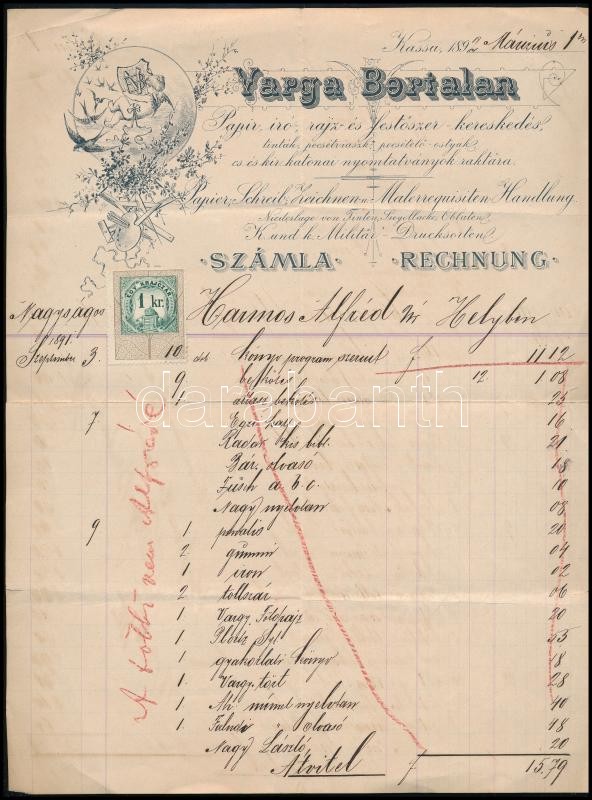 Kassa, 1892 Március 1
Varga Bertalan
Papir-, iró-, rajz- és festőszer-kereskedés,
tinták, pecsétviaszk, pecsételő-ostyák
cs. és kir. katonai nyomtatványok raktára.
Papier-, Schreib-, Zeichnen- u. Malerrequisiten Handlung.
Niederlage von Tinten, Siegellacke, Oblaten,
K. und k. Militär-Drucksorten.
SZÁMLA RECHNUNG
EGY KRAJCZÁR
1 kr.
Nagyságos Harmos Alfréd úr Helyben
1891.
Szeptember 3. 10 drb könyv program szerint f 11 12
9 bekötés 12. 1 08
bekötés 25
7 16
Radó kis bibl. 21
Bár. olvasó 18
a. b. c. 10
Nagy nyelvtan 08
9 1 pennalis 20
2 gummi 04
1 iron 02
2 tollszár 06
1 Vargy. Földrajz 20
1 55
1 gyakorlati könyv 18
1 Vargy. tört 28
1 német nyelvtan 40
1 " olvasó 48
Nagy László 20
Átvitel f 15.79
A többi nem Alfrédé
darabanth